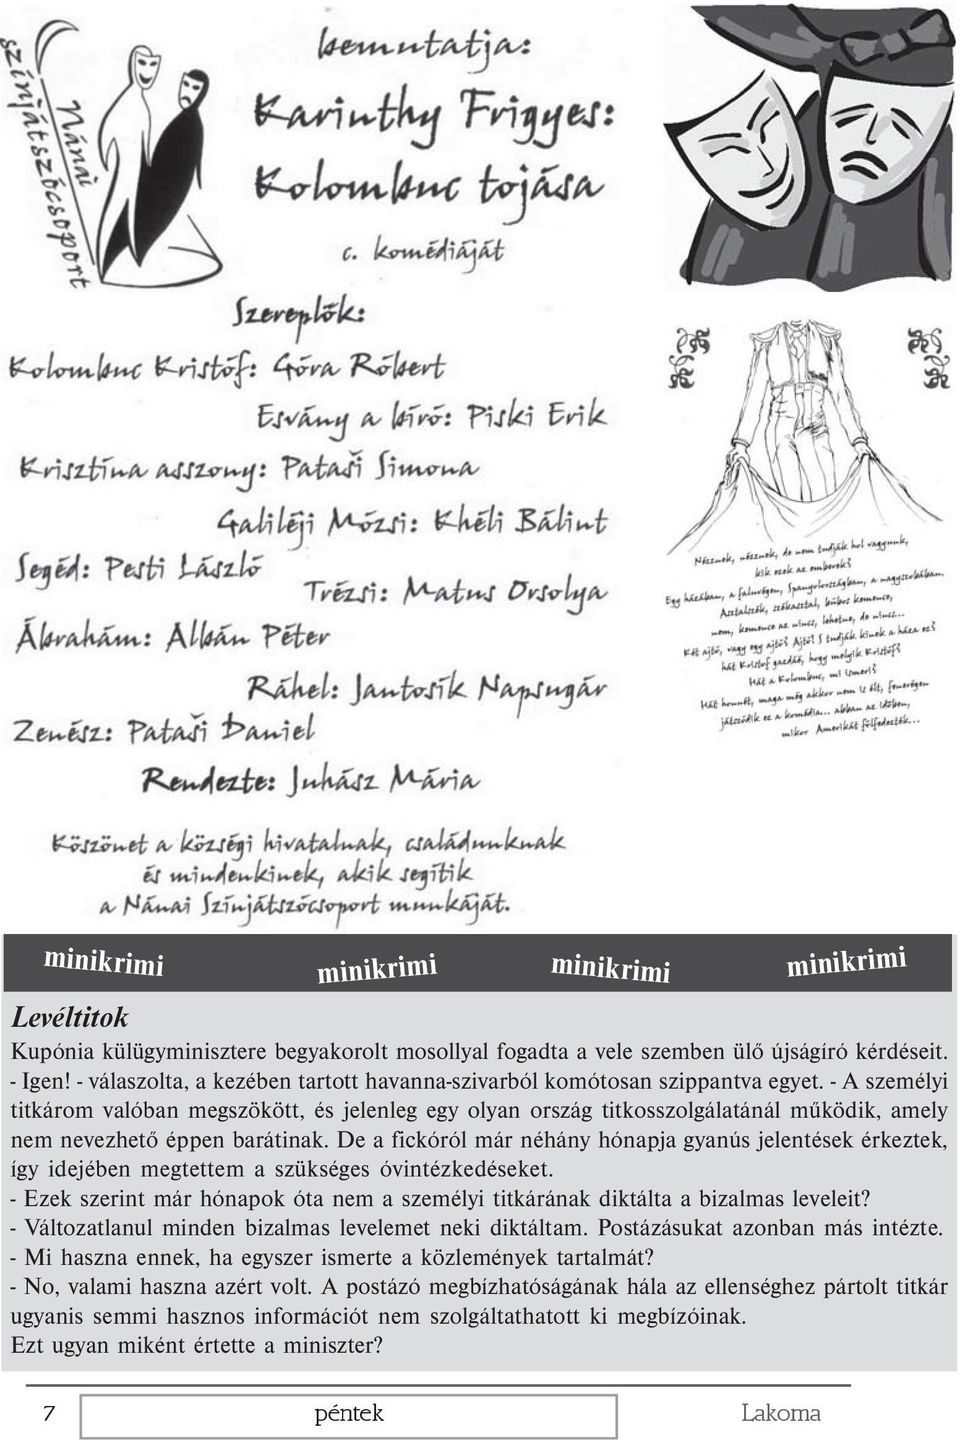 Nánai
színjátszócsoport
bemutatja:
Karinthy Frigyes:
Kolombuc tojása
c. komédiáját
Szereplők:
Kolombuc Kristóf: Góra Róbert
Esvány a bíró: Piski Erik
Krisztína asszony: Pataši Simona
Galiléji Mózsi: Khéli Bálint
Segéd: Pesti László
Trézsi: Matus Orsolya
Ábrahám: Albán Péter
Ráhel: Jantosík Napsugár
Zenész: Pataši Daniel
Rendezte: Juhász Mária
Köszönet a községi hivatalnak, családunknak
és mindenkinek, akik segítik
a Nánai Színjátszócsoport munkáját.
Nézznek, nézznek, de nem tudják hol vagyunk,
kik ezek az emberek?
Egy házában, a faluvégen, Spanyolországban, a nagyszobában.
Asztalszék, székasztal, búbos kemence,
nem, kemence az nincs, lehetne, de nincs...
Két ajtó, vagy egy ajtó? Ajtó! S tudják kinek a háza ez?
hát Kristóf gazdáé, hogy melyik Kristóf?
Hát a Kolombuc, mi ismeri?
Hát honnét, maga még akkor nem is élt, fenerégen
játszódik ez a komédia... abban az időben,
mikor Amerikát fölfedezték...
minikrimi minikrimi minikrimi minikrimi
Levéltitok
Kupónia külügyminisztere begyakorolt mosollyal fogadta a vele szemben ülő újságíró kérdéseit.
- Igen! - válaszolta, a kezében tartott havanna-szivarból komótosan szippantva egyet. - A személyi
titkárom valóban megszökött, és jelenleg egy olyan ország titkosszolgálatánál működik, amely
nem nevezhető éppen barátinak. De a fickóról már néhány hónapja gyanús jelentések érkeztek,
így idejében megtettem a szükséges óvintézkedéseket.
- Ezek szerint már hónapok óta nem a személyi titkárának diktálta a bizalmas leveleit?
- Változatlanul minden bizalmas levelemet neki diktáltam. Postázásukat azonban más intézte.
- Mi haszna ennek, ha egyszer ismerte a közlemények tartalmát?
- No, valami haszna azért volt. A postázó megbízhatóságának hála az ellenséghez pártolt titkár
ugyanis semmi hasznos információt nem szolgáltathatott ki megbízóinak.
Ezt ugyan miként értette a miniszter?
7 péntek Lakoma